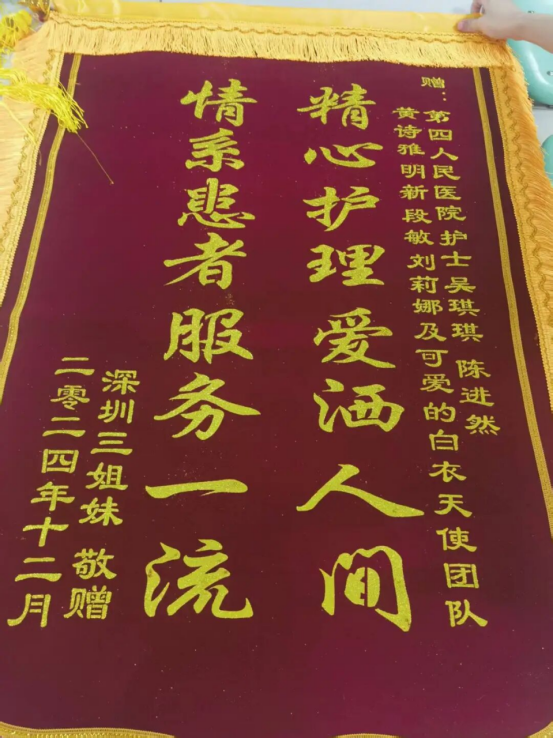 赠：第四人民医院护士吴琪琪 陈进然
黄诗雅明新段敏刘莉娜及可爱的白衣天使团队
精心护理爱洒人间
情系患者服务一流
深圳三姐妹 敬赠
二零二四年十二月